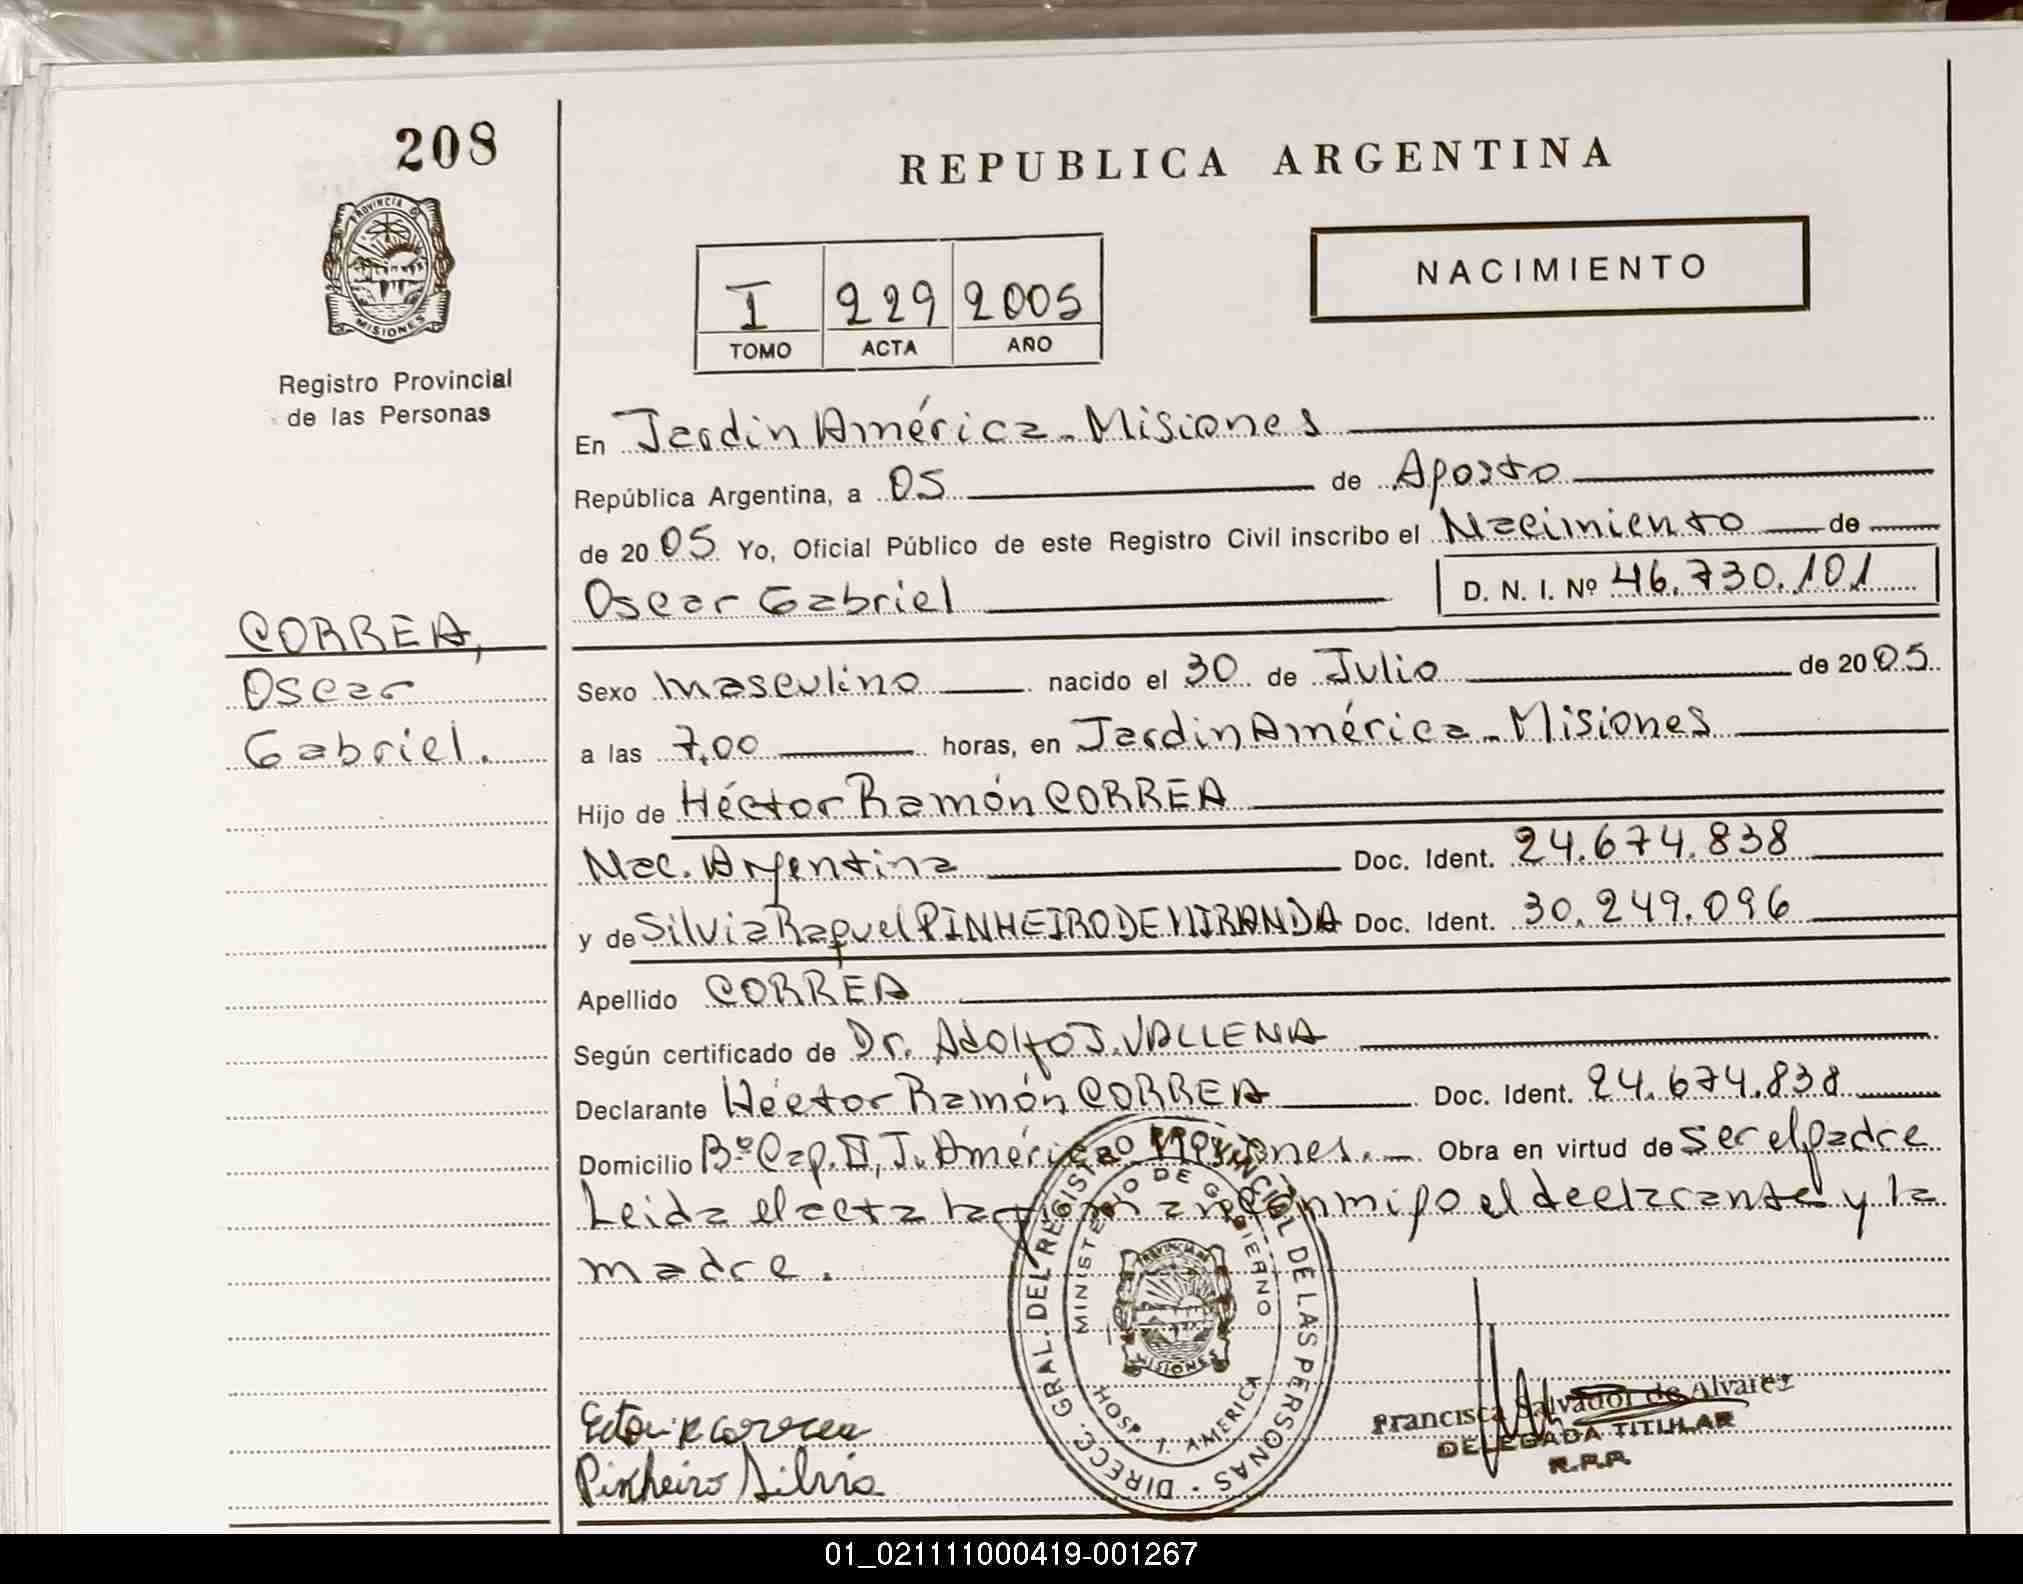 208
REPUBLICA ARGENTINA
PROVINCIA DE
MISIONES
Registro Provincial
de las Personas
I 229 2005
TOMO ACTA AÑO
NACIMIENTO
En Jardin América - Misiones
República Argentina, a 05 de Agosto
de 2005 Yo, Oficial Público de este Registro Civil inscribo el Nacimiento de
Oscar Gabriel D. N. I. Nº 46.730.101
CORREA,
Oscar
Gabriel.
Sexo masculino nacido el 30 de Julio de 2005
a las 7,00 horas, en Jardin América - Misiones
Hijo de Héctor Ramón CORREA
Nac. Argentina Doc. Ident. 24.674.838
y de Silvia Raquel PINHEIRO DE MIRANDA Doc. Ident. 30.249.096
Apellido CORREA
Según certificado de Dr. Adolfo J. VALLENA
Declarante Héctor Ramón CORREA Doc. Ident. 24.674.838
Domicilio Bº Cap. II, J. América Misiones. Obra en virtud de ser el padre
Leida el acta la firman conmigo el declarante y la
madre.
DIRECC. GRAL. DEL REGISTRO PROVINCIAL DE LAS PERSONAS
MINISTERIO DE GOBIERNO
PROVINCIA DE
MISIONES
HOSP. J. AMERICA
Ector R correa
Pinheiro Silvia
Francisca Salvador de Alvarez
DELEGADA TITULAR
R.P.P.
01_021111000419-001267